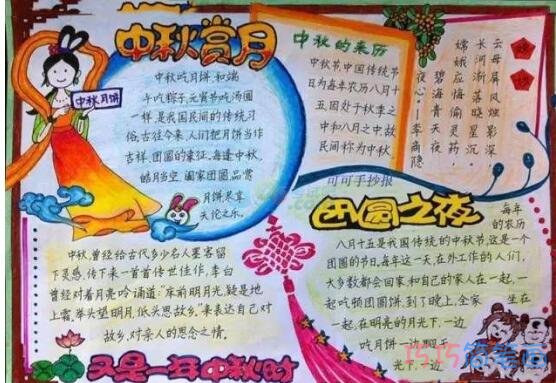 中秋赏月
中秋月饼
中秋吃月饼和端
午吃粽子、元宵节吃汤圆
一样,是我国民间的传统习
俗,古往今来,人们把月饼当作
吉祥、团圆的象征,每逢中秋,
皓月当空,阖家团圆品赏
月饼尽享
天伦之乐。
中秋的来历
中秋节中国传统节
日为每年农历八月十
五因处于秋季之
中和八月之中故
民间称为中秋
云母屏风烛影深
长河渐落晓星沉
嫦娥应悔偷灵药
碧海青天夜
夜心——李商隐
可可手抄报
团圆之夜
每年
的农历
八月十五是我国传统的中秋节,这是一个
团圆的节日,每年这一天,在外工作的人们,
大多数都会回家和自己的家人在一起,一
起吃顿团圆饼,到了晚上,全家 坐在
一起,在明亮的月光下,一边
吃月饼一边
光下,一边
中秋,曾经给古代多少名人墨客留
下灵感,传下来一首首传世佳作,李白
曾经对着月亮吟诵道:“床前明月光,疑是地
上霜,举头望明月,低头思故乡。”来表达自己对
故乡,对亲人的思念之情。
又是一年中秋时